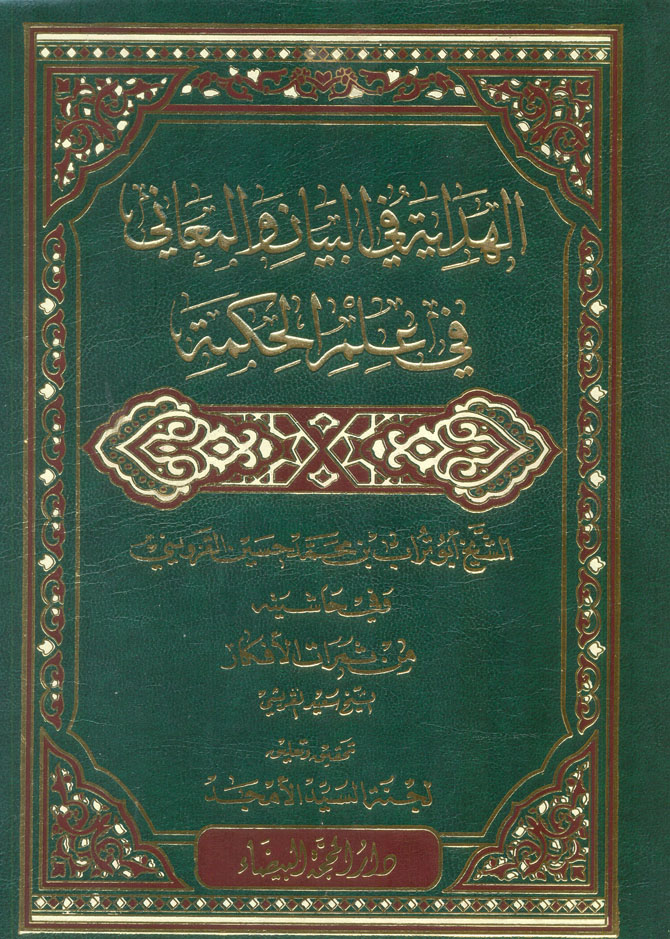 الهداية في البيان والمعاني
في علم الحكمة
الشيخ أبو تراب بن محمد حسين القزويني
وفي حاشيته
من ثمرات الأفكار
الشيخ سعيد القريشي
تحقيق وتعليق
لجنة السيد الأمجد
دار المحجة البيضاء